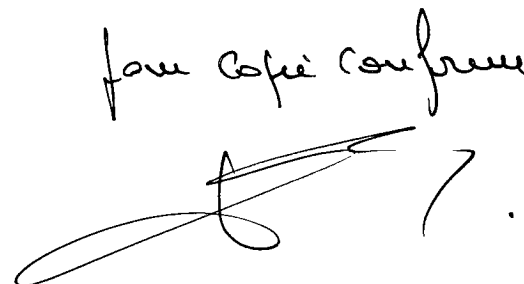 pour copie conforme